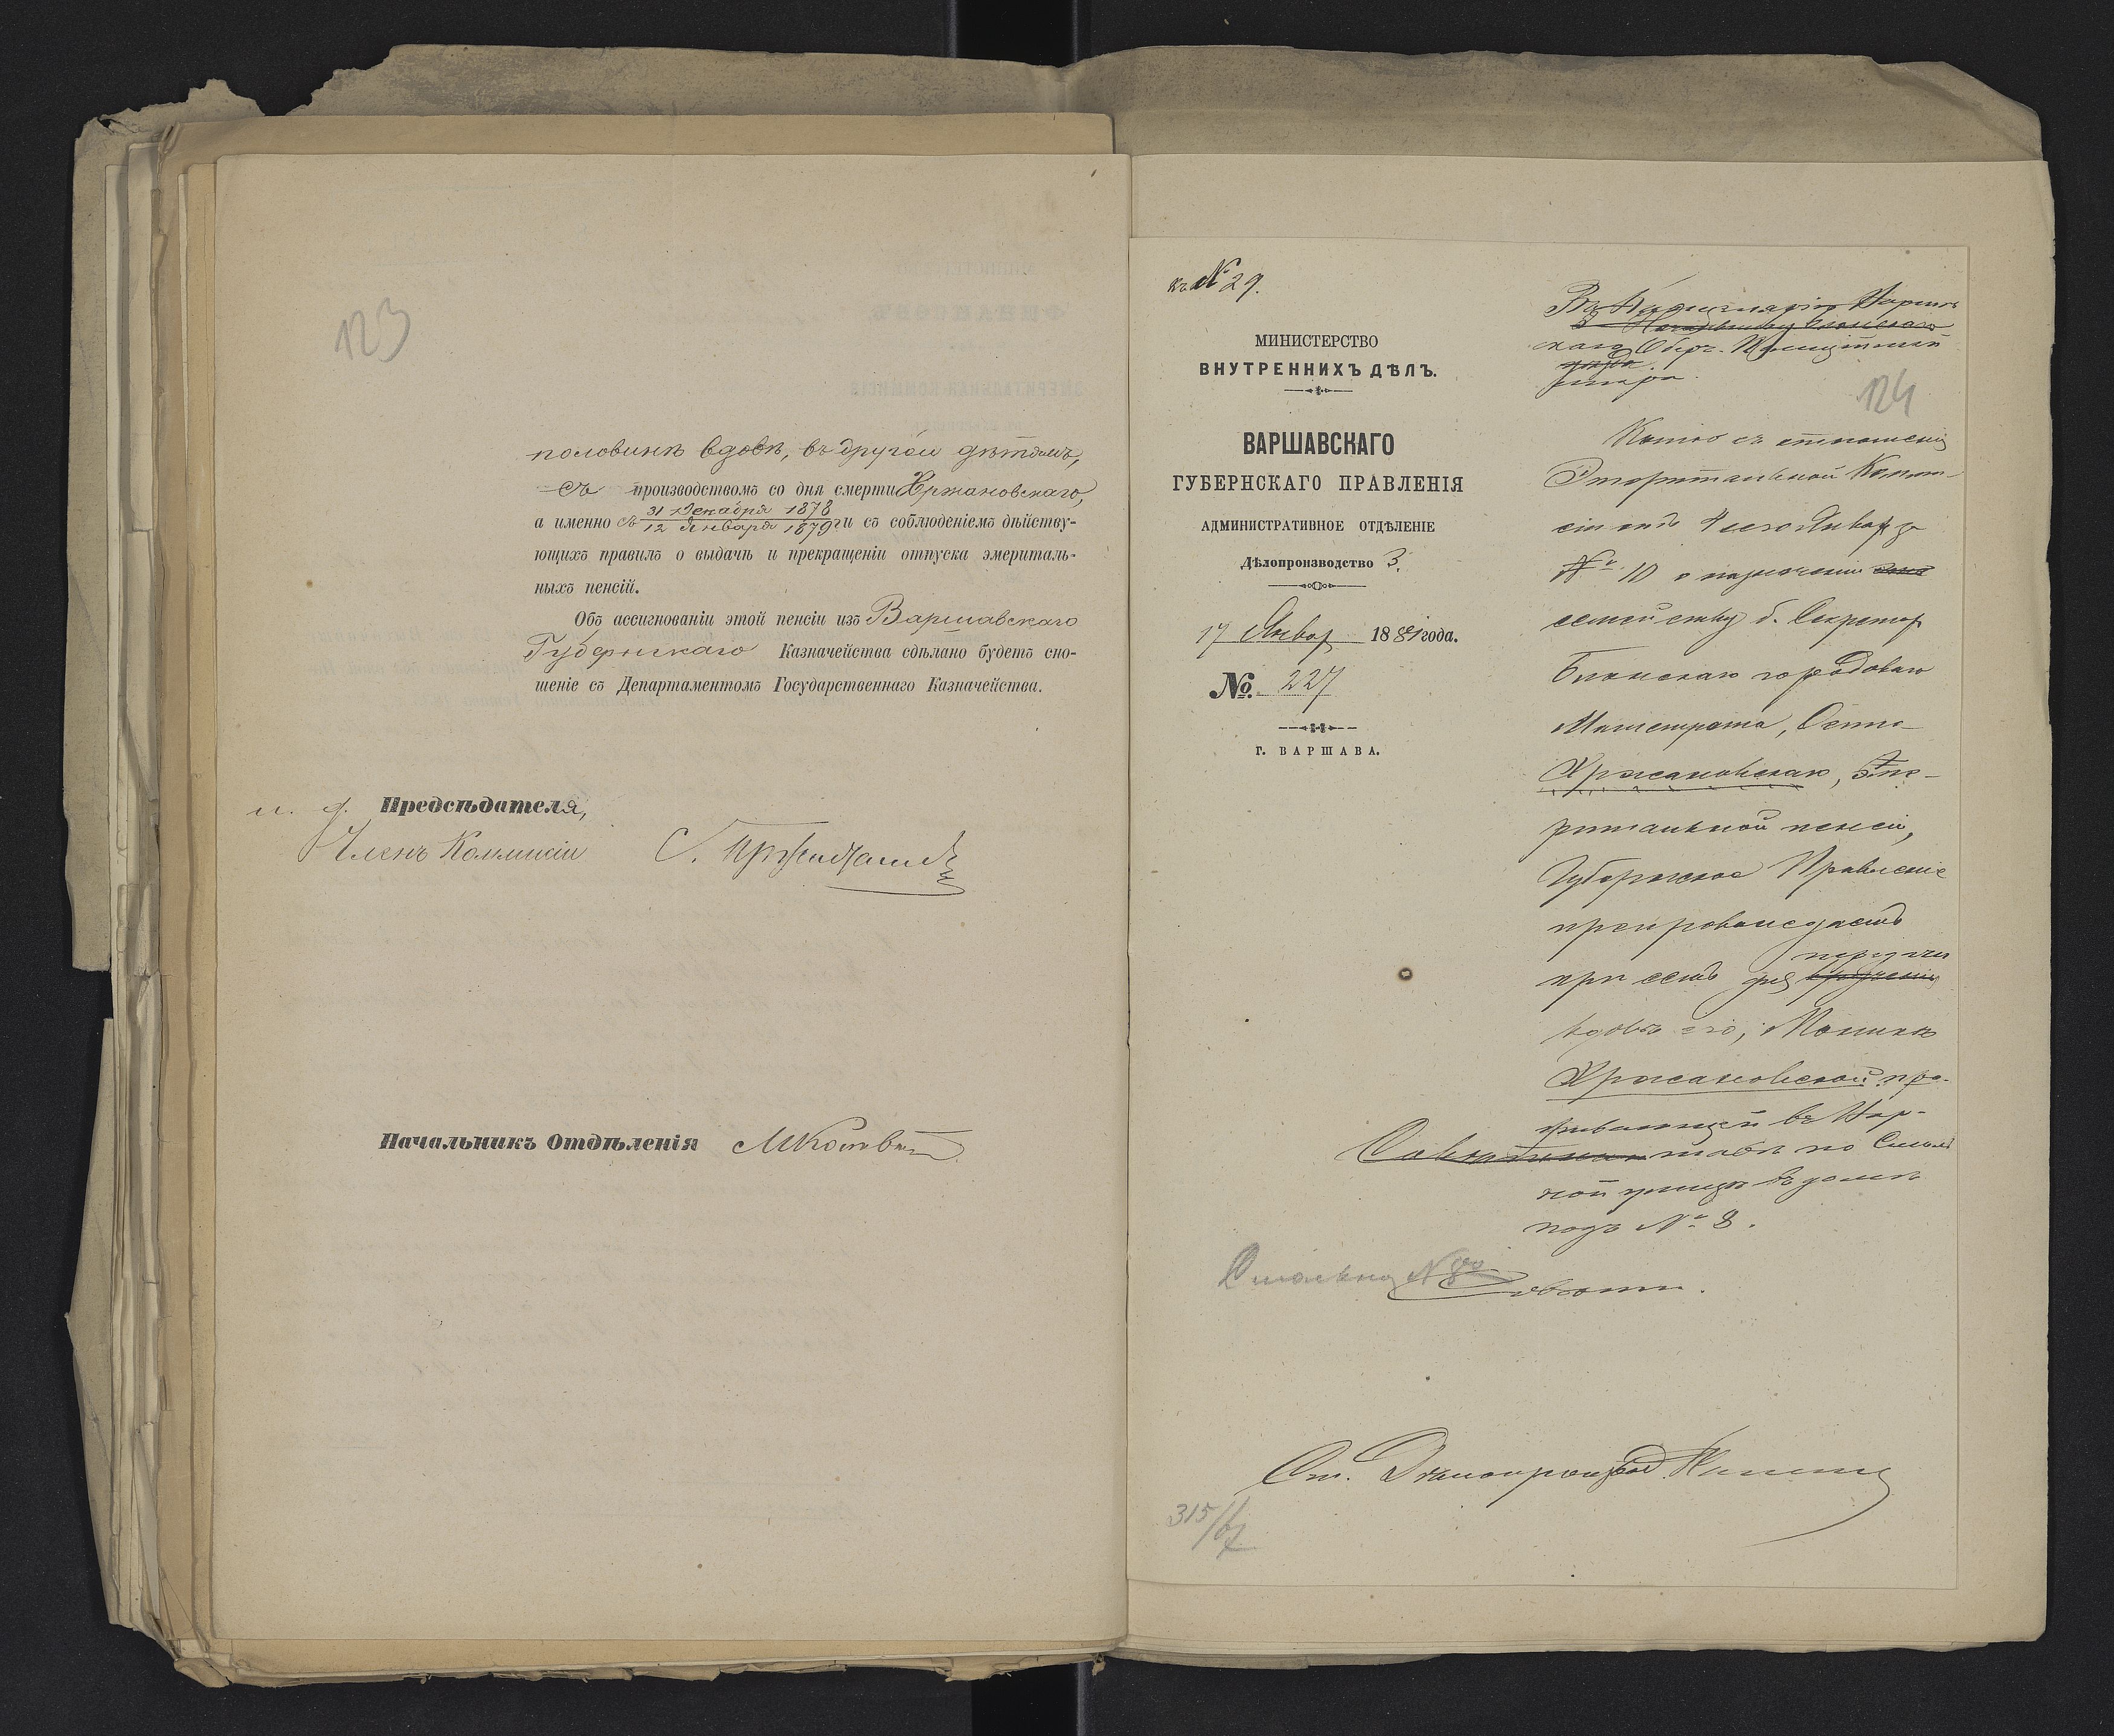 123
половинѣ вдовѣ, въ другой дѣтямъ,
съ производствомъ со дня смерти Хржановскаго,
а именно съ 31 Декабря 1878
12 Января 1879 г. и съ соблюденіемъ дѣйству-
ющихъ правилъ о выдачѣ и прекращеніи отпуска эмериталь-
ныхъ пенсій.
Объ ассигнованіи этой пенсіи изъ Варшавскаго
Губернскаго Казначейства сдѣлано будетъ сно-
шеніе съ Департаментомъ Государственнаго Казначейства.
и. д. Предсѣдателя,
Членъ Коммисіи
Начальникъ Отдѣленія
къ № 29.
МИНИСТЕРСТВО
ВНУТРЕННИХЪ ДѢЛЪ.
ВАРШАВСКАГО
ГУБЕРНСКАГО ПРАВЛЕНІЯ
АДМИНИСТРАТИВНОЕ ОТДѢЛЕНІЕ
Дѣлопроизводство 3.
17 Январ 1881 года.
№ 227
Г. ВАРШАВА.
Въ Канцелярію Варшав
Начальнику Блонскаго
скаго Оберъ-Полицій
уѣзда.
124
Копію съ отношенія
Эмеритальной Комми-
сіи отъ 4 сего Января за
№ 10 о назначеніи
семейству б. Секретар
Блонскаго городоваго
Магистрата, Осипа
Хржановскаго, Эме-
ритальной пенсіи,
Губернское Правленіе
препровождаетъ
передачи
при семъ для врученія
вдовѣ его,
Хржановской, про-
живающей въ Вар-
шавѣ по Смоль
ной улицѣ въ домѣ
подъ № 8.
Смольна № 8
Совѣтникъ
Ст. Дѣлопроизвод.
315/67